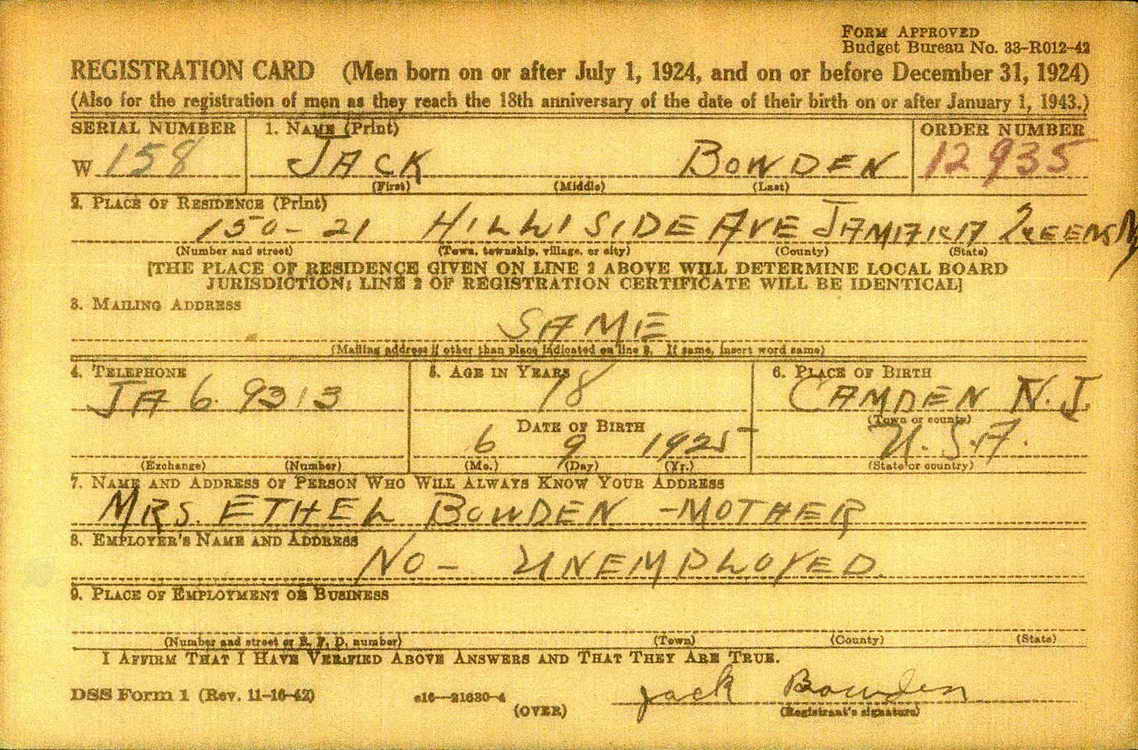 FORM APPROVED
Budget Bureau No. 33-R012-42
REGISTRATION CARD (Men born on or after July 1, 1924, and on or before December 31, 1924)
(Also for the registration of men as they reach the 18th anniversary of the date of their birth on or after January 1, 1943.)
SERIAL NUMBER 1. NAME (Print) ORDER NUMBER
W 158 JACK BOWDEN 12935
(First) (Middle) (Last)
2. PLACE OF RESIDENCE (Print)
150-21 HILLISIDE AVE JAMAICA QUEENS NY
(Number and street) (Town, township, village, or city) (County) (State)
[THE PLACE OF RESIDENCE GIVEN ON LINE 2 ABOVE WILL DETERMINE LOCAL BOARD
JURISDICTION; LINE 2 OF REGISTRATION CERTIFICATE WILL BE IDENTICAL]
3. MAILING ADDRESS
SAME
(Mailing address if other than place indicated on line 2. If same, insert word same)
4. TELEPHONE 5. AGE IN YEARS 6. PLACE OF BIRTH
JA 6 9313 18 CAMDEN N.J.
DATE OF BIRTH (Town or county)
6 9 1925 U.S.A.
(Exchange) (Number) (Mo.) (Day) (Yr.) (State or country)
7. NAME AND ADDRESS OF PERSON WHO WILL ALWAYS KNOW YOUR ADDRESS
MRS. ETHEL BOWDEN - MOTHER
8. EMPLOYER'S NAME AND ADDRESS
NO - UNEMPLOYED.
9. PLACE OF EMPLOYMENT OR BUSINESS
(Number and street or R. F. D. number) (Town) (County) (State)
I AFFIRM THAT I HAVE VERIFIED ABOVE ANSWERS AND THAT THEY ARE TRUE.
DSS Form 1 (Rev. 11-16-42) c16-21630-4 Jack Bowden
(OVER) (Registrant's signature)